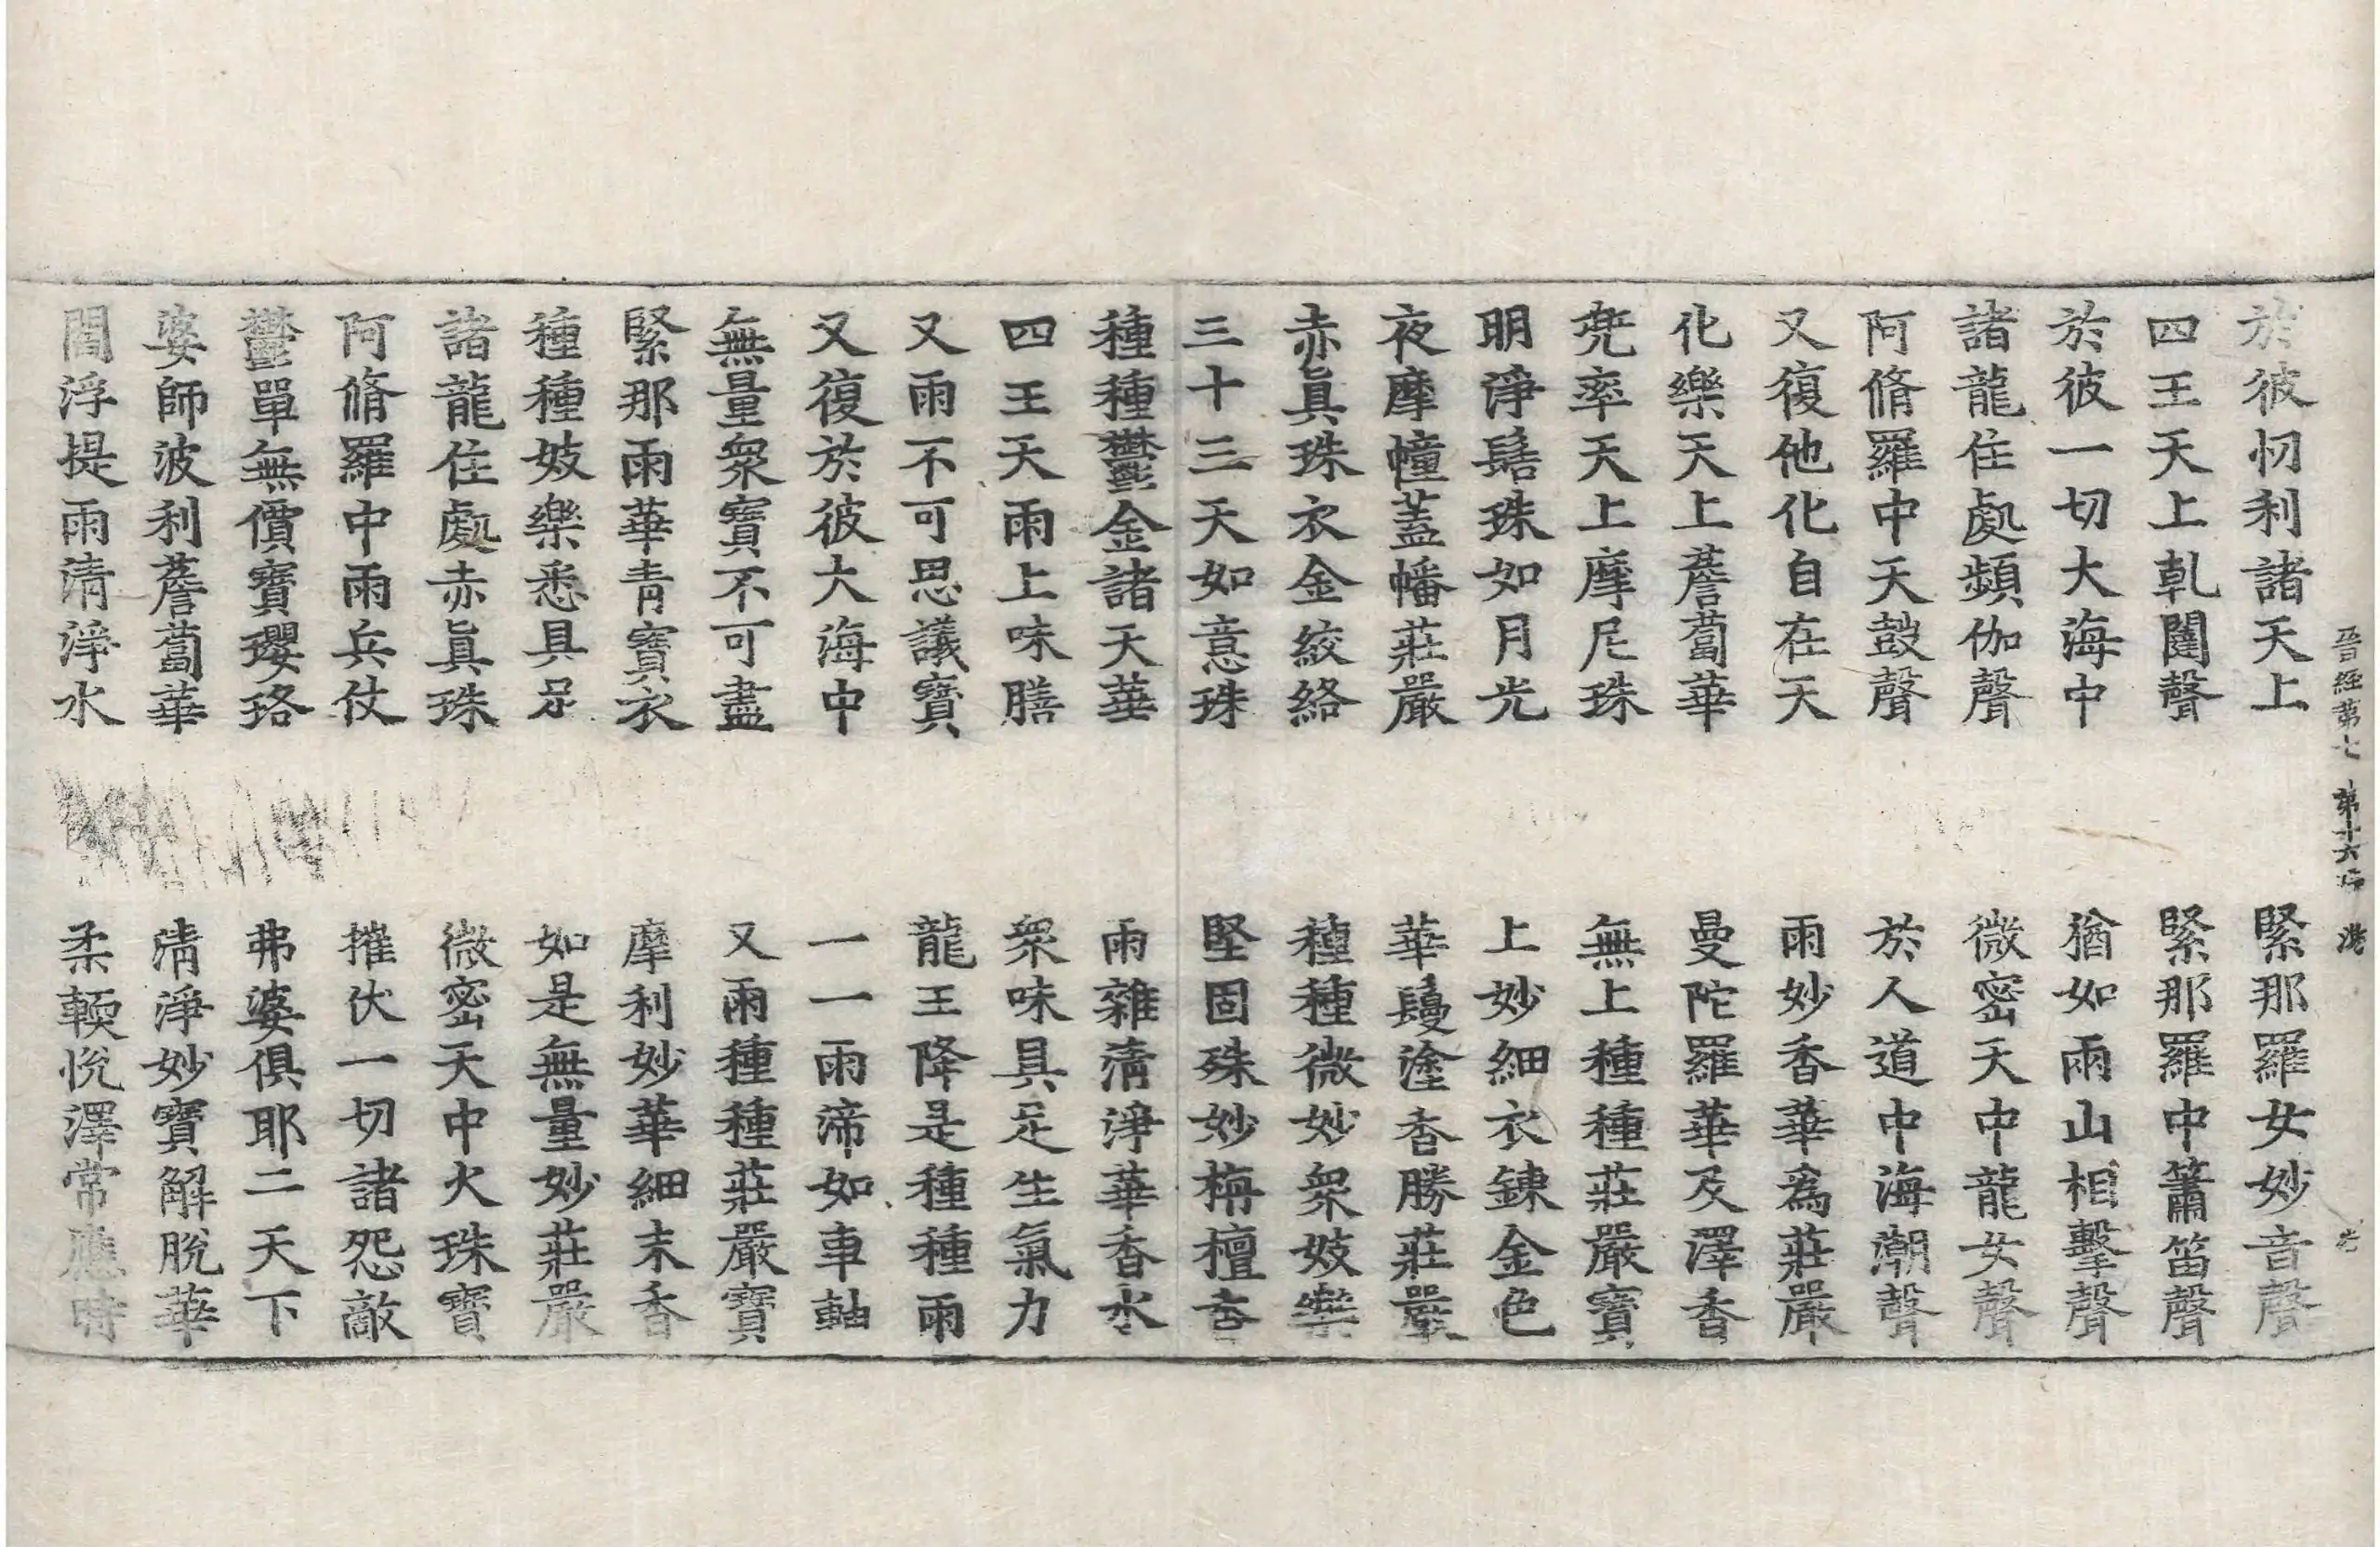 晉經第七 第十六 湯
於彼忉利諸天上 緊那羅女妙音聲
四王天上乹闥聲 緊那羅中簫笛聲
於彼一切大海中 猶如兩山相擊聲
諸龍住處頻伽聲 微密天中龍女聲
阿脩羅中天鼓聲 於人道中海潮聲
又復他化自在天 雨妙香華為莊嚴
化樂天上薝蔔華 曼陀羅華及澤香
兜率天上摩尼珠 無上種種莊嚴寶
明淨髻珠如月光 上妙細衣鍊金色
夜摩幢盖幡莊嚴 華鬘塗香勝莊嚴
赤真珠衣金絞絡 種種微妙衆妓樂
三十三天如意珠 堅固殊妙栴檀香
種種鬱金諸天華 雨雜清淨華香水
四王天雨上味膳 衆味具足生氣力
又雨不可思議寶 龍王降是種種雨
又復於彼大海中 一一雨渧如車軸
無量衆寶不可盡 又雨種種莊嚴寶
緊那雨華青寶衣 摩利妙華細末香
種種妓樂悉具足 如是無量妙莊嚴
諸龍住處赤真珠 微密天中火珠寶
阿脩羅中雨兵仗 摧伏一切諸怨敵
鬱單無價寶瓔珞 弗婆俱耶二天下
婆師波利薝蔔華 清淨妙寶解脫華
閻浮提雨清淨水 柔輭悅澤常應時